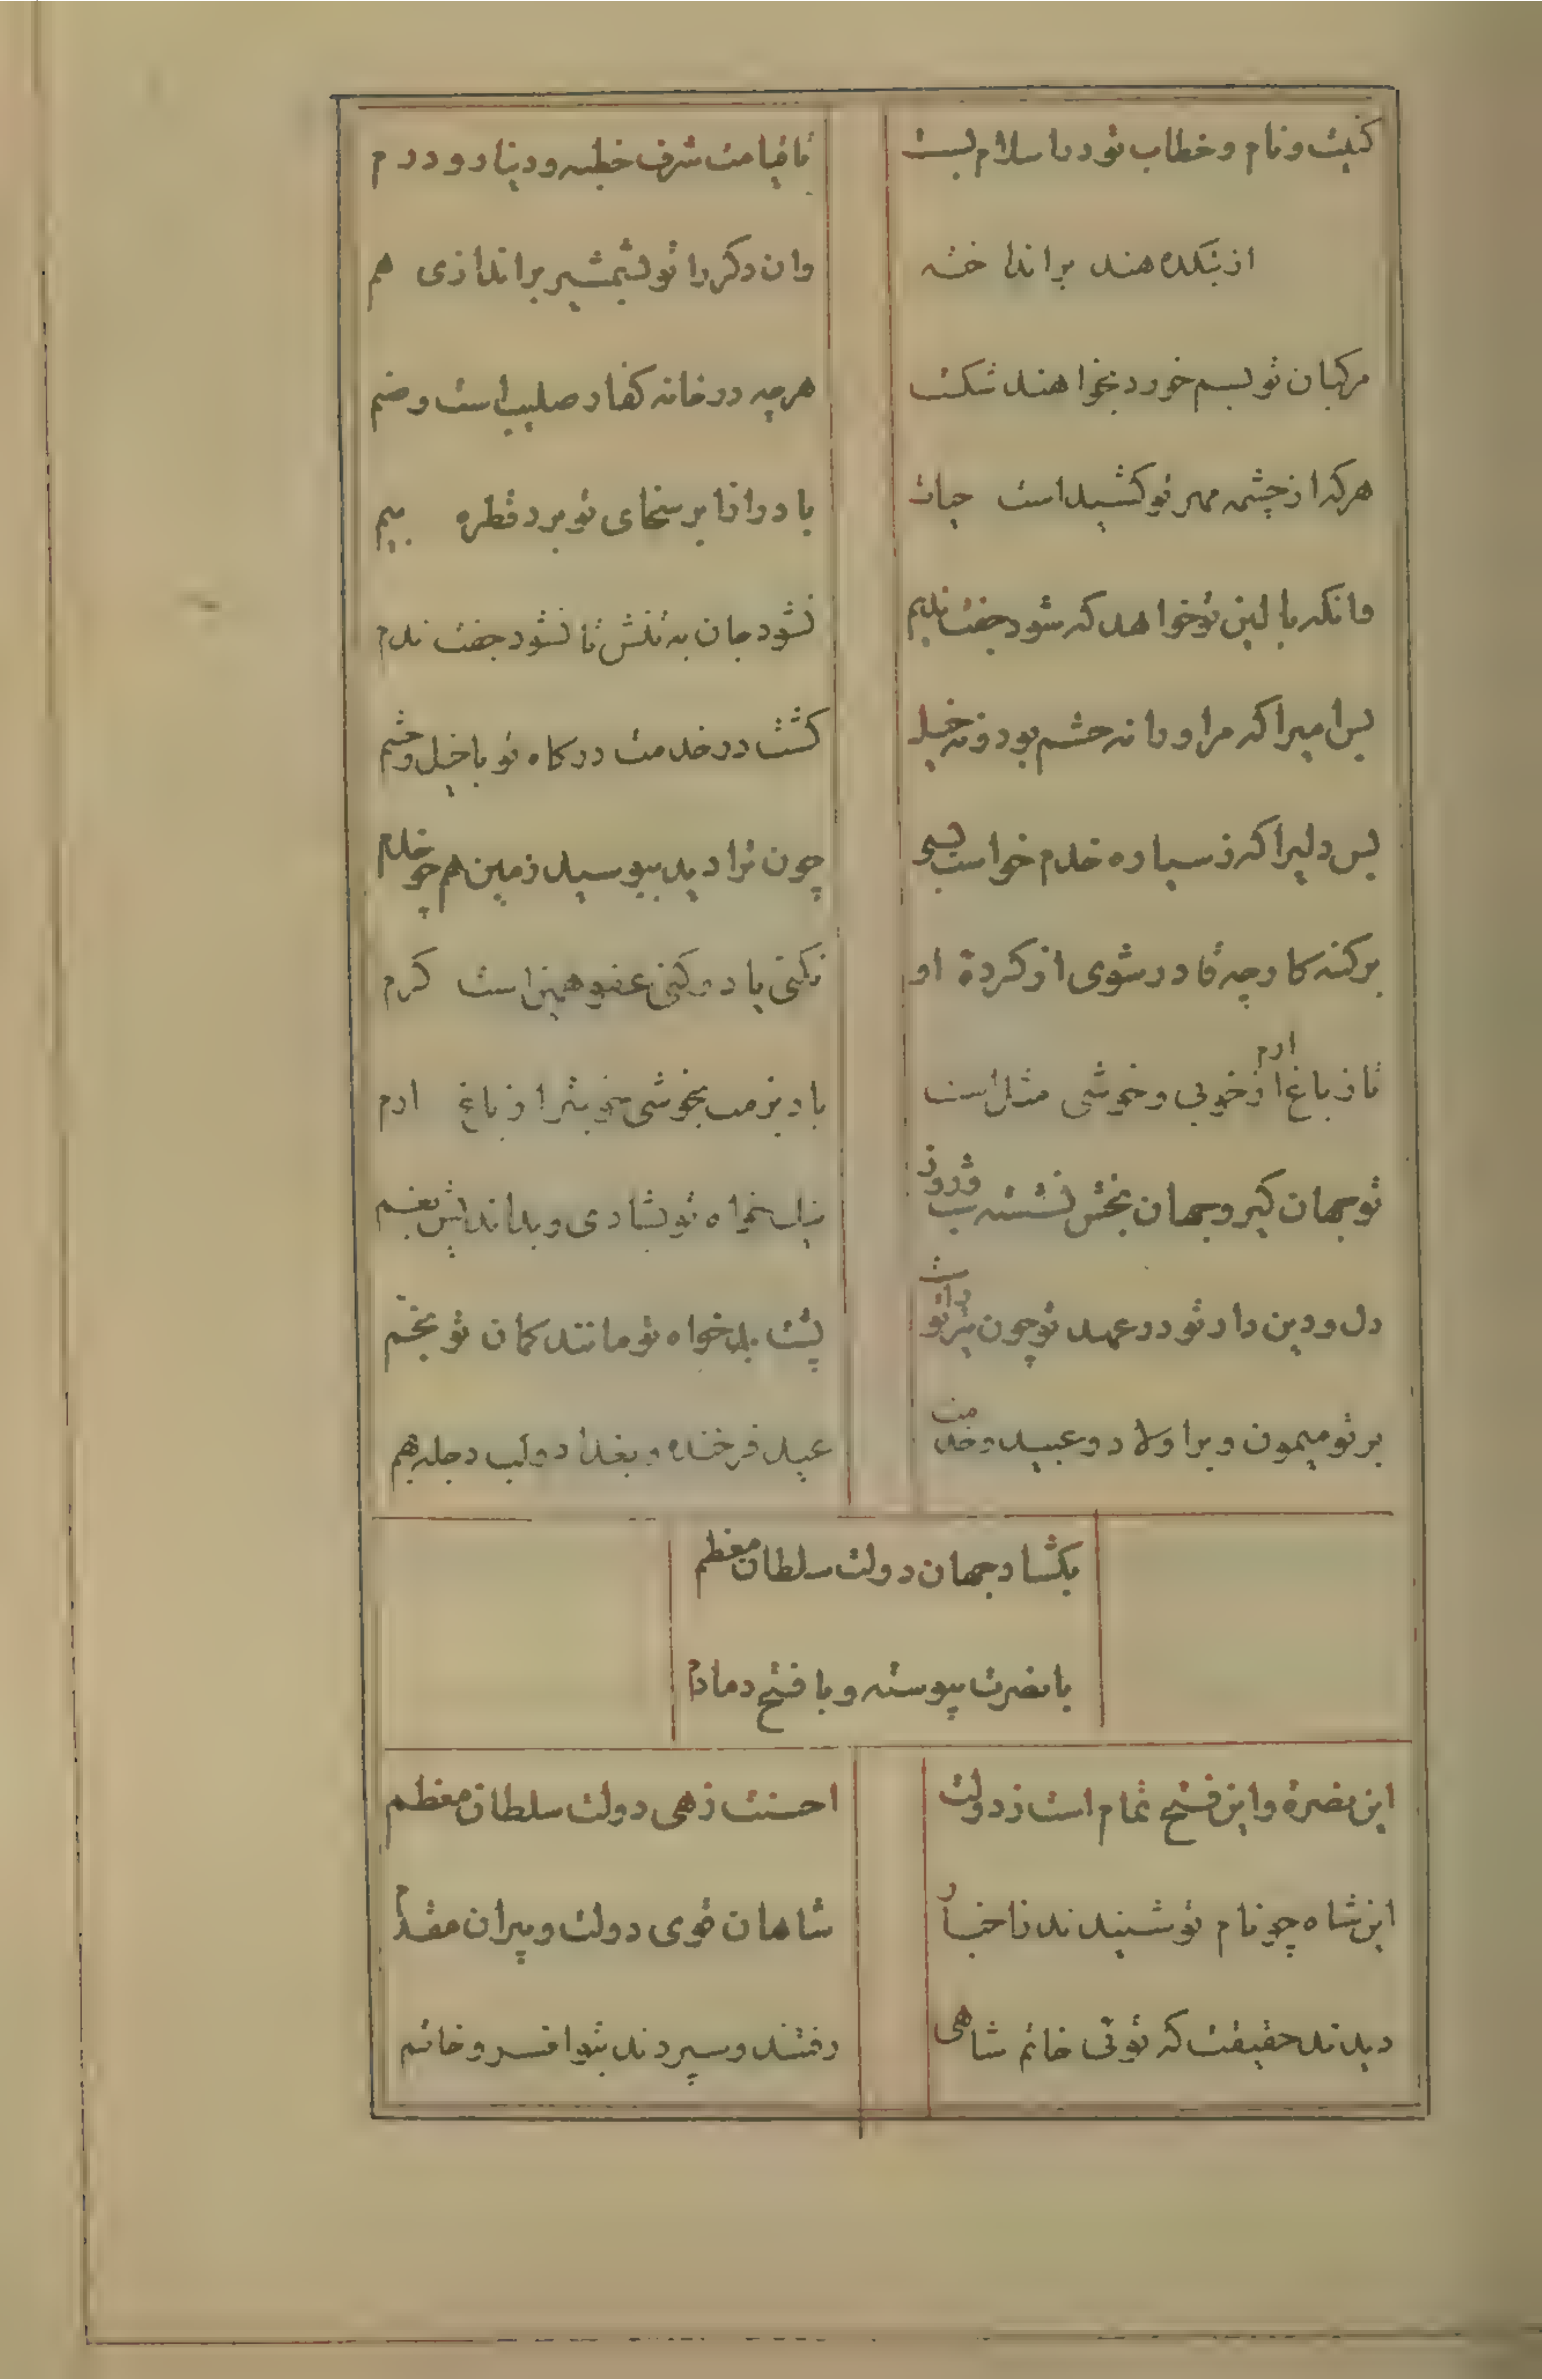 کنیت و نام و خطاب تو در اسلام بست
تا قیامت شرف خطبه و دینار و درم
از بتکده هند بر انداخته
وان دکر را تو بشمشیر براندازی هم
مرکبان تو بسم خورد بخواهند شکست
هرچه در خانه کفار صلیب است و صنم
هرکه از چشمه مهر تو کشیداست حیات
باد را تا بر سخای تو برد قطره بیم
وانکه بالین تو خواهد که شود جفت ندیم
نشود جان به تنش تا نشود جفت ندم
بس امیرا که مر او را نه حشم بود و نه خیل
کشت در خدمت درکاه تو با خیل و حشم
بس دلیرا که ز سیاره خدم خواست بسی
چون ترا دید ببوسید زمین هم چو خدم
بر کنه کار چه قادر شوی از کردهٔ او
نکنی یاد و کنی عفو همین است کرم
تا ز باغ ارم از خوبی و خوشی مثل است
باد بزمت بخوشی خوبتر از باغ ارم
تو جهان کیر و جهان بخش نشسته شب و روز
نیک خواه تو بشادی و بداندیش بغم
دل و دین دار تو در عهد تو چون تیر تو راست
پشت بدخواه تو مانند کمان تو بخم
بر تو میمون و بر اولاد و عبید و خدمت
عید فرخنده و بغداد و لب دجله بهم
بکشاد جهان دولت سلطان معظم
با نصرت پیوسته و با فتح دمادم
این نصرة و این فتح تمام است ز دولت
احسنت زهی دولت سلطان معظم
این شاه چو نام تو شنیدند ز اخبار
شاهان قوی دولت و پیران مقدم
دیدند حقیقت که توئی خاتم شاهی
رفتند و سپردند بتو افسر و خاتم